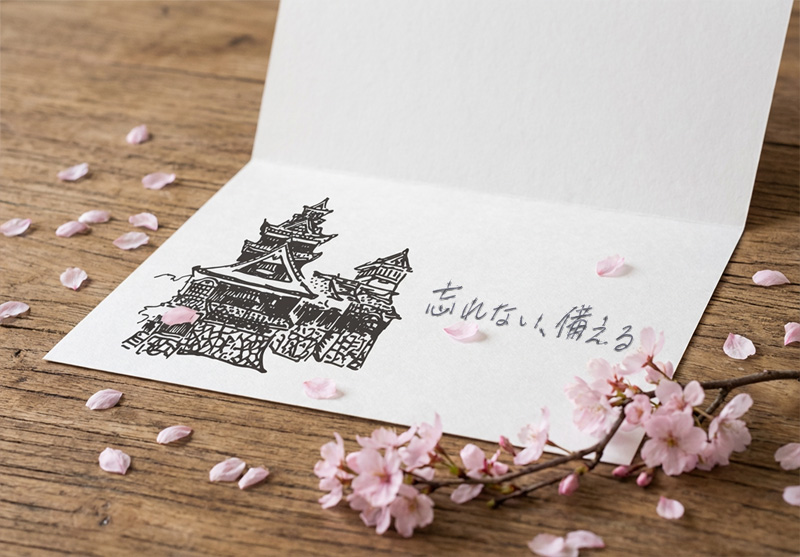 忘れない、備える